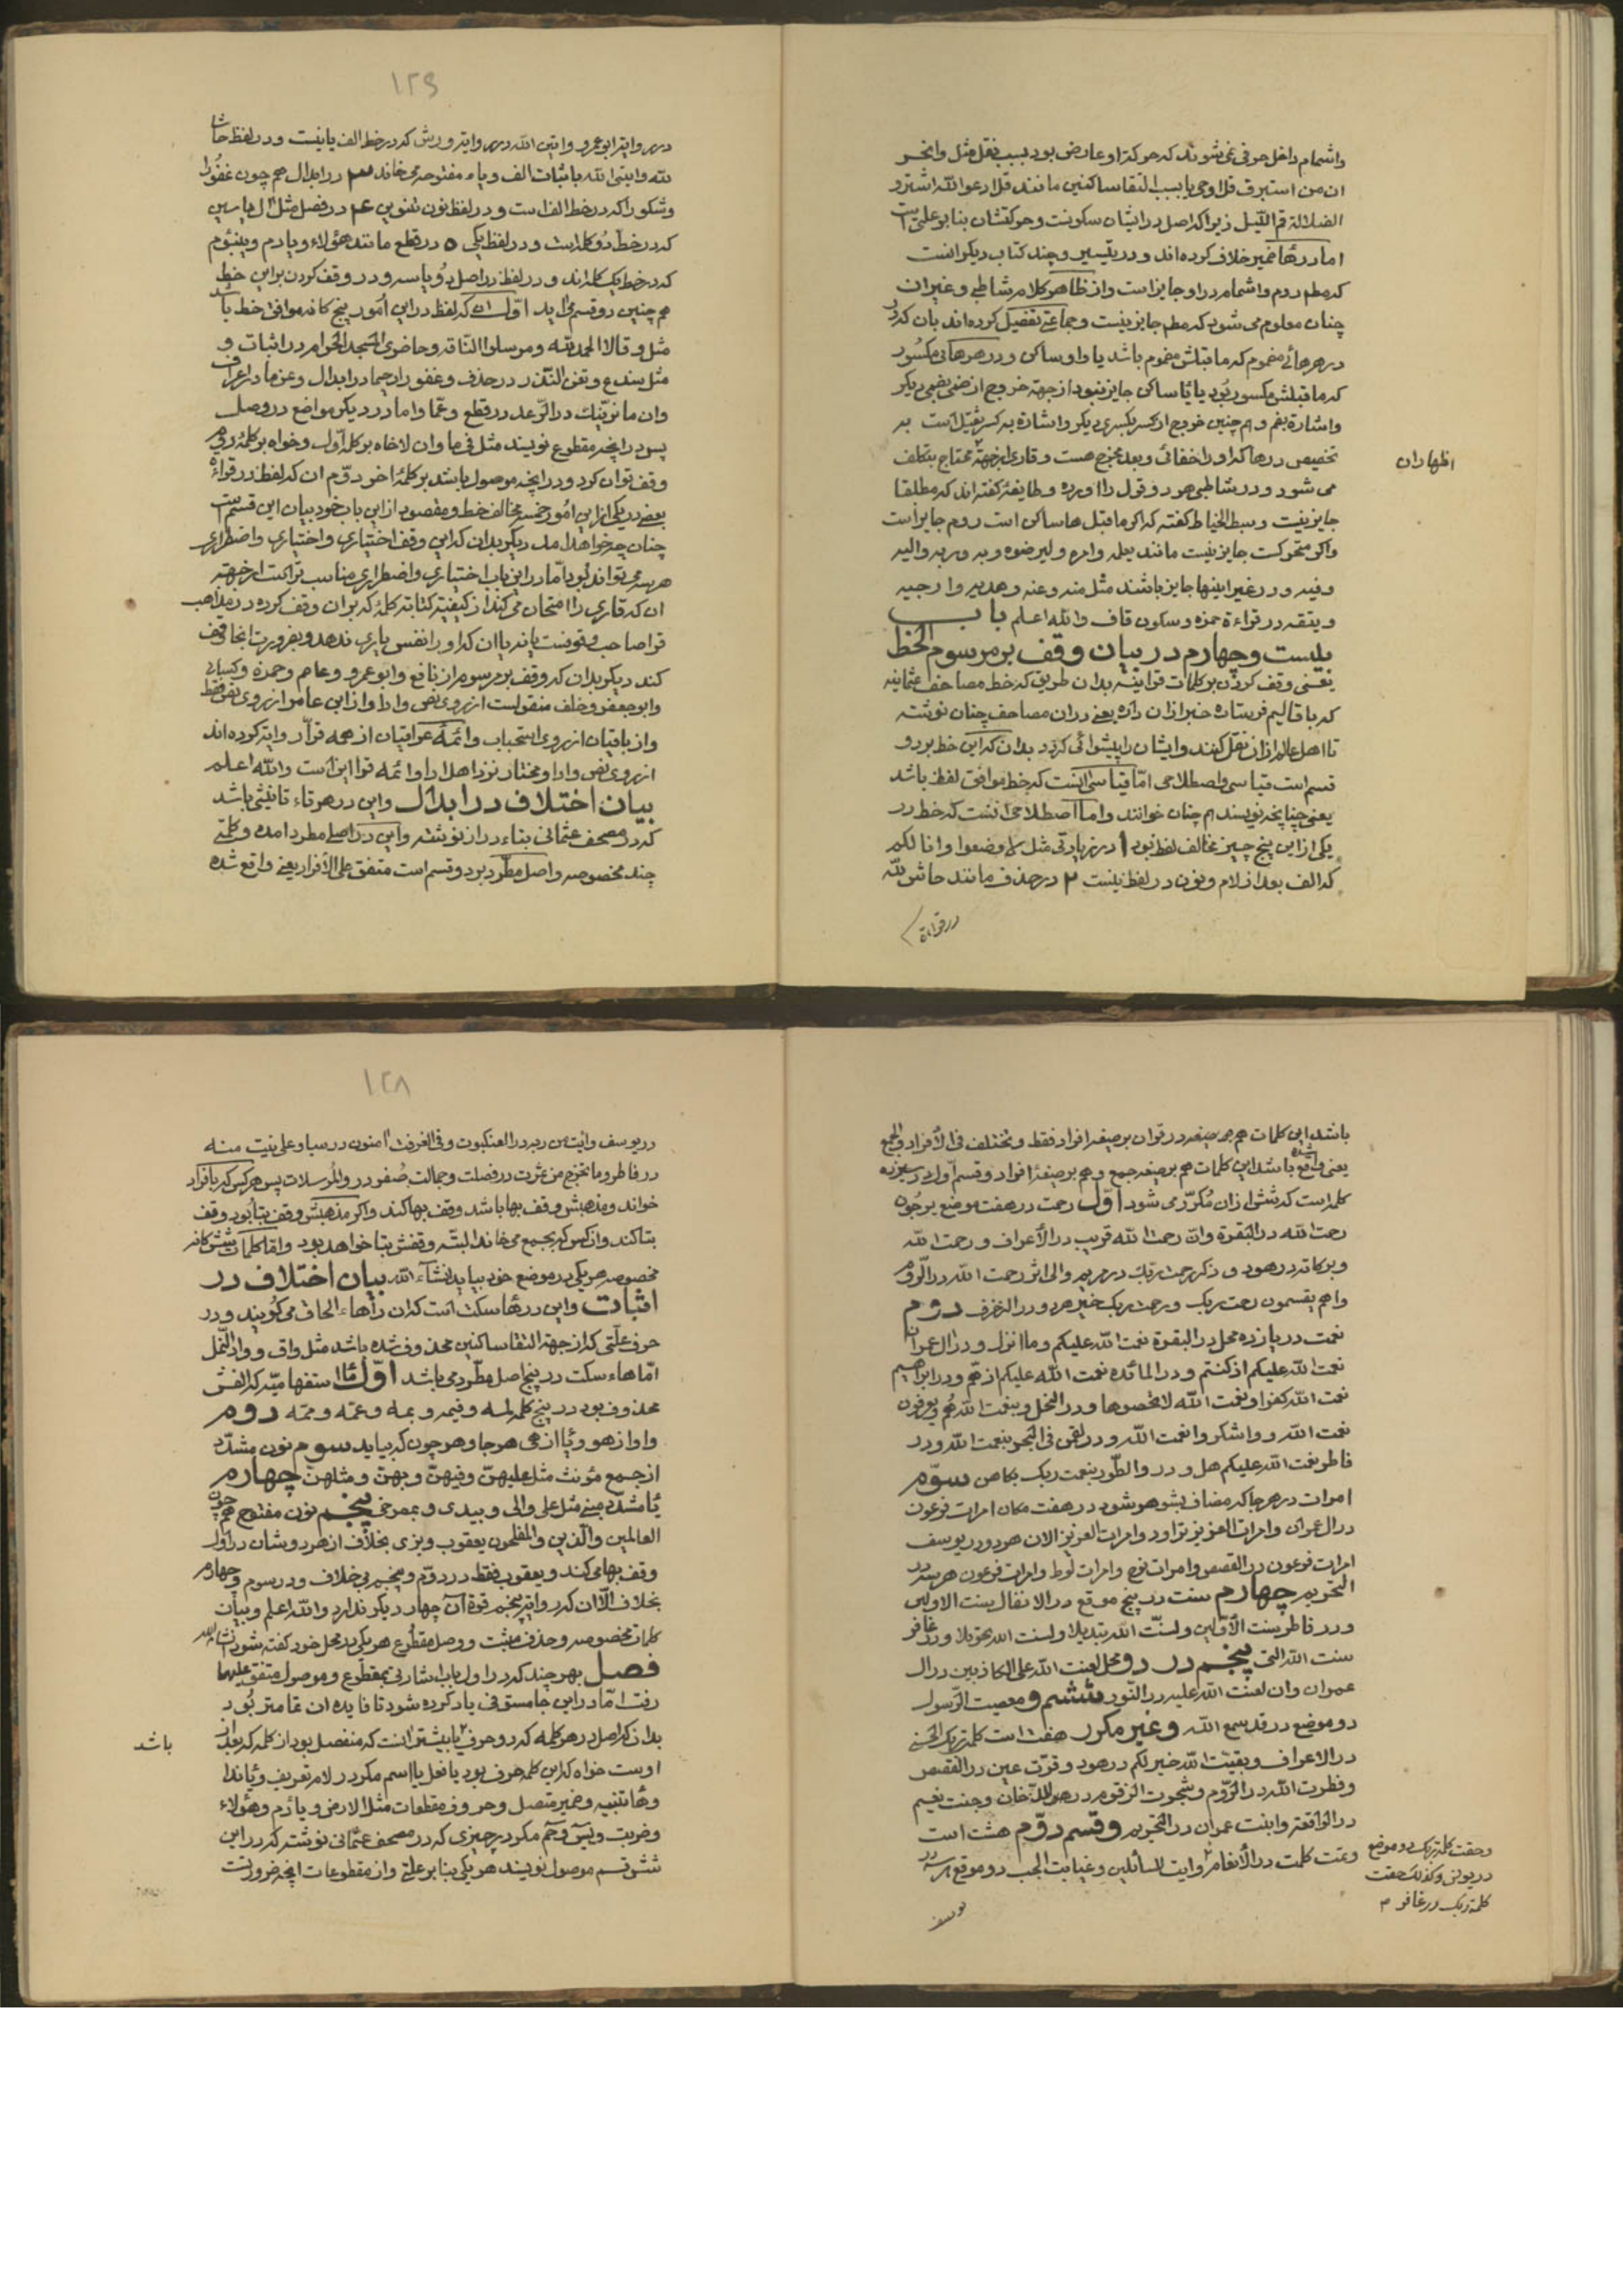 واشمام داخل حرفی نمی‌شوند که حرکة او عارض بود بسبب نقل مثل وانحر
ان من استبرق قل اوحی یا بسبب التقاء ساکنین مانند قل ادعوا الله اشتروا
الضلالة قم اللیل زیرا که اصل در ایشان سکونست وحرکتشان بنا بر علتی است
اما در هاء ضمیر خلاف کرده اند و در تیسیر و چند کتاب دیکر انست
که مطلقا روم واشمام در او جایز است واز ظاهر کلام شاطبی وغیر ان
چنان معلوم می شود که مطلقا جایز نیست وجماعتی تفصیل کرده اند بان که در
در هر هائی مضموم که ما قبلش مضموم باشد یا واو ساکن و در هر هائی مکسور
که ما قبلش مکسور بود یا یاء ساکن جایز نبود از جهة خروج از ضمی بضمی دیکر
واشارة بضم و هم چنین خروج از کسر بکسری دیکر واشارة به کسر ثقیل است به
تخصیص در ها که او را خفائی وبعد مخرج هست وقاری از جهة محتاج بتکلف
اظهار ان
می شود و در شاطبی هر دو قول را اورده وطایفۀ کفته اند که مطلقا
جایز نیست وسبط الخیاط کفته که اکر ما قبل ها ساکن است روم جایز است
واکر متحرکست جایز نیست مانند یعلمه وامره ولیرضوه وبه وربه والیه
وفیه و در غیر اینها جایز باشند مثل منه وعنه وهدیه وارجیه
ویتقه در قراءة حمزه وسکون قاف والله اعلم باب
بیست وچهارم در بیان وقف بر مرسوم الخط
یعنی وقف کردن بر کلمات قراینه بدان طریق که خط مصاحف عثمانیه
که باقالیم فرستاده خبر از ان داده یعنی در ان مصاحف چنان نوشته
تا اهل عالم از ان نقل کنند وایشان را پیشوائی کردد بدان که این خط بر دو
قسم است قیاسی واصطلاحی اما قیاسی انست که خط موافق لفظ باشد
یعنی چنانچه نویسند هم چنان خوانند واما اصطلاحی انست که خط در
یکی از این پنج چیز مخالف لفظ بود ۱ در زیادتی مثل لا اوضعوا وانا لکم
که الف بعد از لام ونون در لفظ نیست ۲ در حذف مانند حاش لله
در قراءة
۱۲۹
در روایة ابو عمرو واتین الله در روایة ورش که در خط الف یا نیست و در لفظ حاشا
لله واتینی الله باثبات الف ویاء مفتوحه می خاند ۳ در ابدال هم چون غفورا
وشکورا که در خط الف است و در لفظ نون تنوین ۴ در فصل مثل ال یاسین
که در خط دو کلمه است و در لفظ یکی ۵ در قطع مانند هؤلاء ویادم ویبنؤم
که در خط یک کلمه اند و در لفظ در اصل دو یا سه و در وقف کردن بر این خط
هم چنین دو قسم می اید اول ان که لفظ در این امور پنج کانه موافق خط باشد
مثل وقالا الحمد لله ومرسلوا الناقه وحاضری المسجد الحرام در اثبات و
مثل سندع وتغن النذر در حذف وغفورا رحیما در ابدال وعن ما در اعراف
وان ما نرینک در الرعد در قطع وعما واما در دیکر مواضع در وصل
پس در انچه مقطوع نویسند مثل فی ما وان لا خاه بر کلمه اول وخواه بر کلمۀ دوم
وقف توان کرد و در انچه موصول باشد بر کلمۀ اخر دوم ان که لفظ در قراءة
بعضی در یکی از این امور خمسه مخالف خط ومقصود از این باب خود بیان این قسم است
چنان چه خواهد امد دیکر بدان که این وقف اختیاری واختباری واضطراری
هر سه می تواند بود اما در این باب اختباری واضطراری مناسب تر است از جهة
ان که قاری را امتحان می کند از کیفیة کتابة کلمۀ که بر ان وقف کرده در مذاهب
قرا صاحب وقوفست یا نه یا ان که او را نفس یاری ندهد وبضرورت انجا وقف
کند دیکر بدان که وقف بر مرسوم از نافع وابو عمرو وعاصم وحمزه وکسائی
وابو جعفر وخلف منقولست از روی نص وادا واز ابن عامر از روی نص فقط
واز باقیان از روی استحباب وائمۀ عراقیان از همه قرا روایة کرده اند
از روی نص وادا ومختار نزد اهل ادا وائمه قرا این است والله اعلم
بیان اختلاف در ابدال واین در هر تاء تانیثی باشد
که در مصحف عثمانی بتاء دراز نوشته واین در اصلی مطرد امده وکلمتی
چند مخصوصه واصل مطرد بر دو قسم است متفق علی الافراد یعنی واقع شده
باشد این کلمات هم هر صیغه در قران بر صیغه افراد فقط ومختلف فی الافراد والجمع
یعنی واقع شده باشد این کلمات هم بر صیغه جمع وهم بر صیغۀ افراد وقسم اولی سیزده
کلمه است که شش از ان مکرر می شود اول رحمت در هفت موضع یرجون
رحمت الله در البقرة وان رحمت الله قریب در الاعراف ورحمت الله
وبرکاته در هود وذکر رحمت ربک در مریم والی اثر رحمت الله در الروم
واهم یقسمون رحمت ربک ورحمت ربک خیر هر دو در الزخرف دوم
نعمت در یازده محل در البقرة نعمت الله علیکم وما انزل و در ال عمران
نعمت الله علیکم اذ کنتم و در المائده نعمت الله علیکم اذ هم و در ابراهیم
نعمت الله کفرا ونعمت الله لا تحصوها و در النحل وبنعمت الله هم ویعرفون
نعمت الله وواشکروا نعمت الله و در لقمن فی البحر بنعمت الله و در
فاطر نعمت الله علیکم هل و در والطور بنعمت ربک بکاهن سوم
امرات در هر جا که مضاف بشوهر شود در هفت مکان امرات فرعون
در ال عمران وامرات العزیز تراود وامرات العزیز الان هر دو در یوسف
امرات فرعون در القصص وامرات نوح وامرات لوط وامرات فرعون هر سه در
التحریم چهارم سنت در پنج موقع در الانفال سنت الاولین
و در فاطر سنت الاولین ولسنت الله تبدیلا ولسنت الله تحویلا و در غافر
سنت الله التی پنجم در دو محل لعنت الله علی الکاذبین در ال
عمران وان لعنت الله علیه در النور ششم ومعصیت الرسول
دو موضع در قد سمع الله وغیر مکرر هفت است کلمت ربک الحسنی
در الاعراف وبقیت الله خیر لکم در هود وقرت عین در القصص
وفطرت الله در الروم وشجرت الزقوم در هو الدخان وجنت نعیم
در الواقعة وابنت عمران در التحریم وقسم دوم هشت است
وتمت کلمت در الانعام ۲ وایت للسائلین وغیابت الجب دو موقع هر سه در
وحقت کلمة ربک دو موضع
در یونس وکذلک حقت
کلمة ربک در غافر م
یوسف
۱۲۸
در یوسف وایت من ربه در العنکبوت وفی الغرفت امنون در سبا وعلی بینت منه
در فاطر وما تخرج من ثمرت در فصلت وجمالت صفر در والمرسلات پس هر کس که بافراد
خواند ومذهبش وقف بها باشد وقف بها کند واکر مذهبش وقف بتا بود وقف
بتا کند وان کس که بجمع می خاند البته وقفش بتا خواهد بود واما کلمات شش کانه
مخصوصه هر یکی در موضع خود بیاید انشاء الله بیان اختلاف در
اثبات واین در هاء سکت است که ان را هاء الحاق می کویند و در
حرف علتی که از جهة التقاء ساکنین محذوف شده باشد مثل واق وواد النمل
اما هاء سکت در پنج اصل مطرد می باشد اول ما استفهامیه که الفش
محذوف بود در پنج کلمه لمه وفیمه وبمه وعمه وممه دوم
واو از هو ویا از هی هر جا وهر چون که بیاید سوم نون مشدد
از جمع مؤنث مثل علیهن وفیهن وبهن ومثلهن چهارم
یا مشدد مبنی مثل علی والی وبیدی وبمصرخی پنجم نون مفتوح هم چون
العالمین والذین والمفلحون یعقوب وبزی بخلاف از هر دوشان در اول
وقف بها می کند ویعقوب فقط در دوم وپنجم بی خلاف و در سوم وچهارم
بخلاف الا ان که روایة پنجم قوة ان چهار دیکر ندارد والله اعلم وبیان
کلمات مخصوصه وحذف مثبت ووصل مقطوع هر یکی در محل خود کفته شود انشاء الله
فصل بهر چند که در اول باب اشارتی بمقطوع وموصول متفق علیهما
رفت اما در این جا مستوفی یاد کرده شود تا فایده ان تمامتر بود
بدان که اصل در هر کلمه که دو حرفی یا بیشتر انست که منفصل بود از کلمه که بعد از
باشد
اوست خواه که این کلمه حرف بود یا فعل یا اسم مکر در لام تعریف ویا ندا
وهاء تنبیه وضمیر متصل وحروف مقطعات مثل الارض ویادم وهؤلاء
وضربت ویس وحم مکر در چیزی که در مصحف عثمانی نوشته که در این
شش قسم موصول نویسند هر یکی بنا بر علتی واز مقطوعات انچه ضرورتست